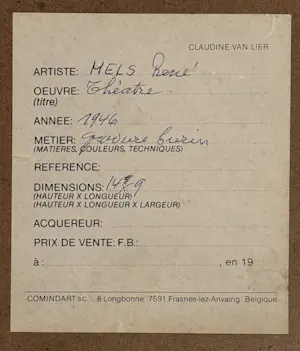 CLAUDINE VAN LIER
ARTISTE: MELS René
OEUVRE: Théatre
(titre)
ANNEE: 1946
METIER: gravure burin
(MATIERES, COULEURS, TECHNIQUES)
REFERENCE:
DIMENSIONS:
(HAUTEUR X LONGUEUR)
(HAUTEUR X LONGUEUR X LARGEUR)
ACQUEREUR:
PRIX DE VENTE: F.B.:
à: , en 19
COMINDART s.c. 8 Longbonne 7591 Frasnes-lez-Anvaing Belgique